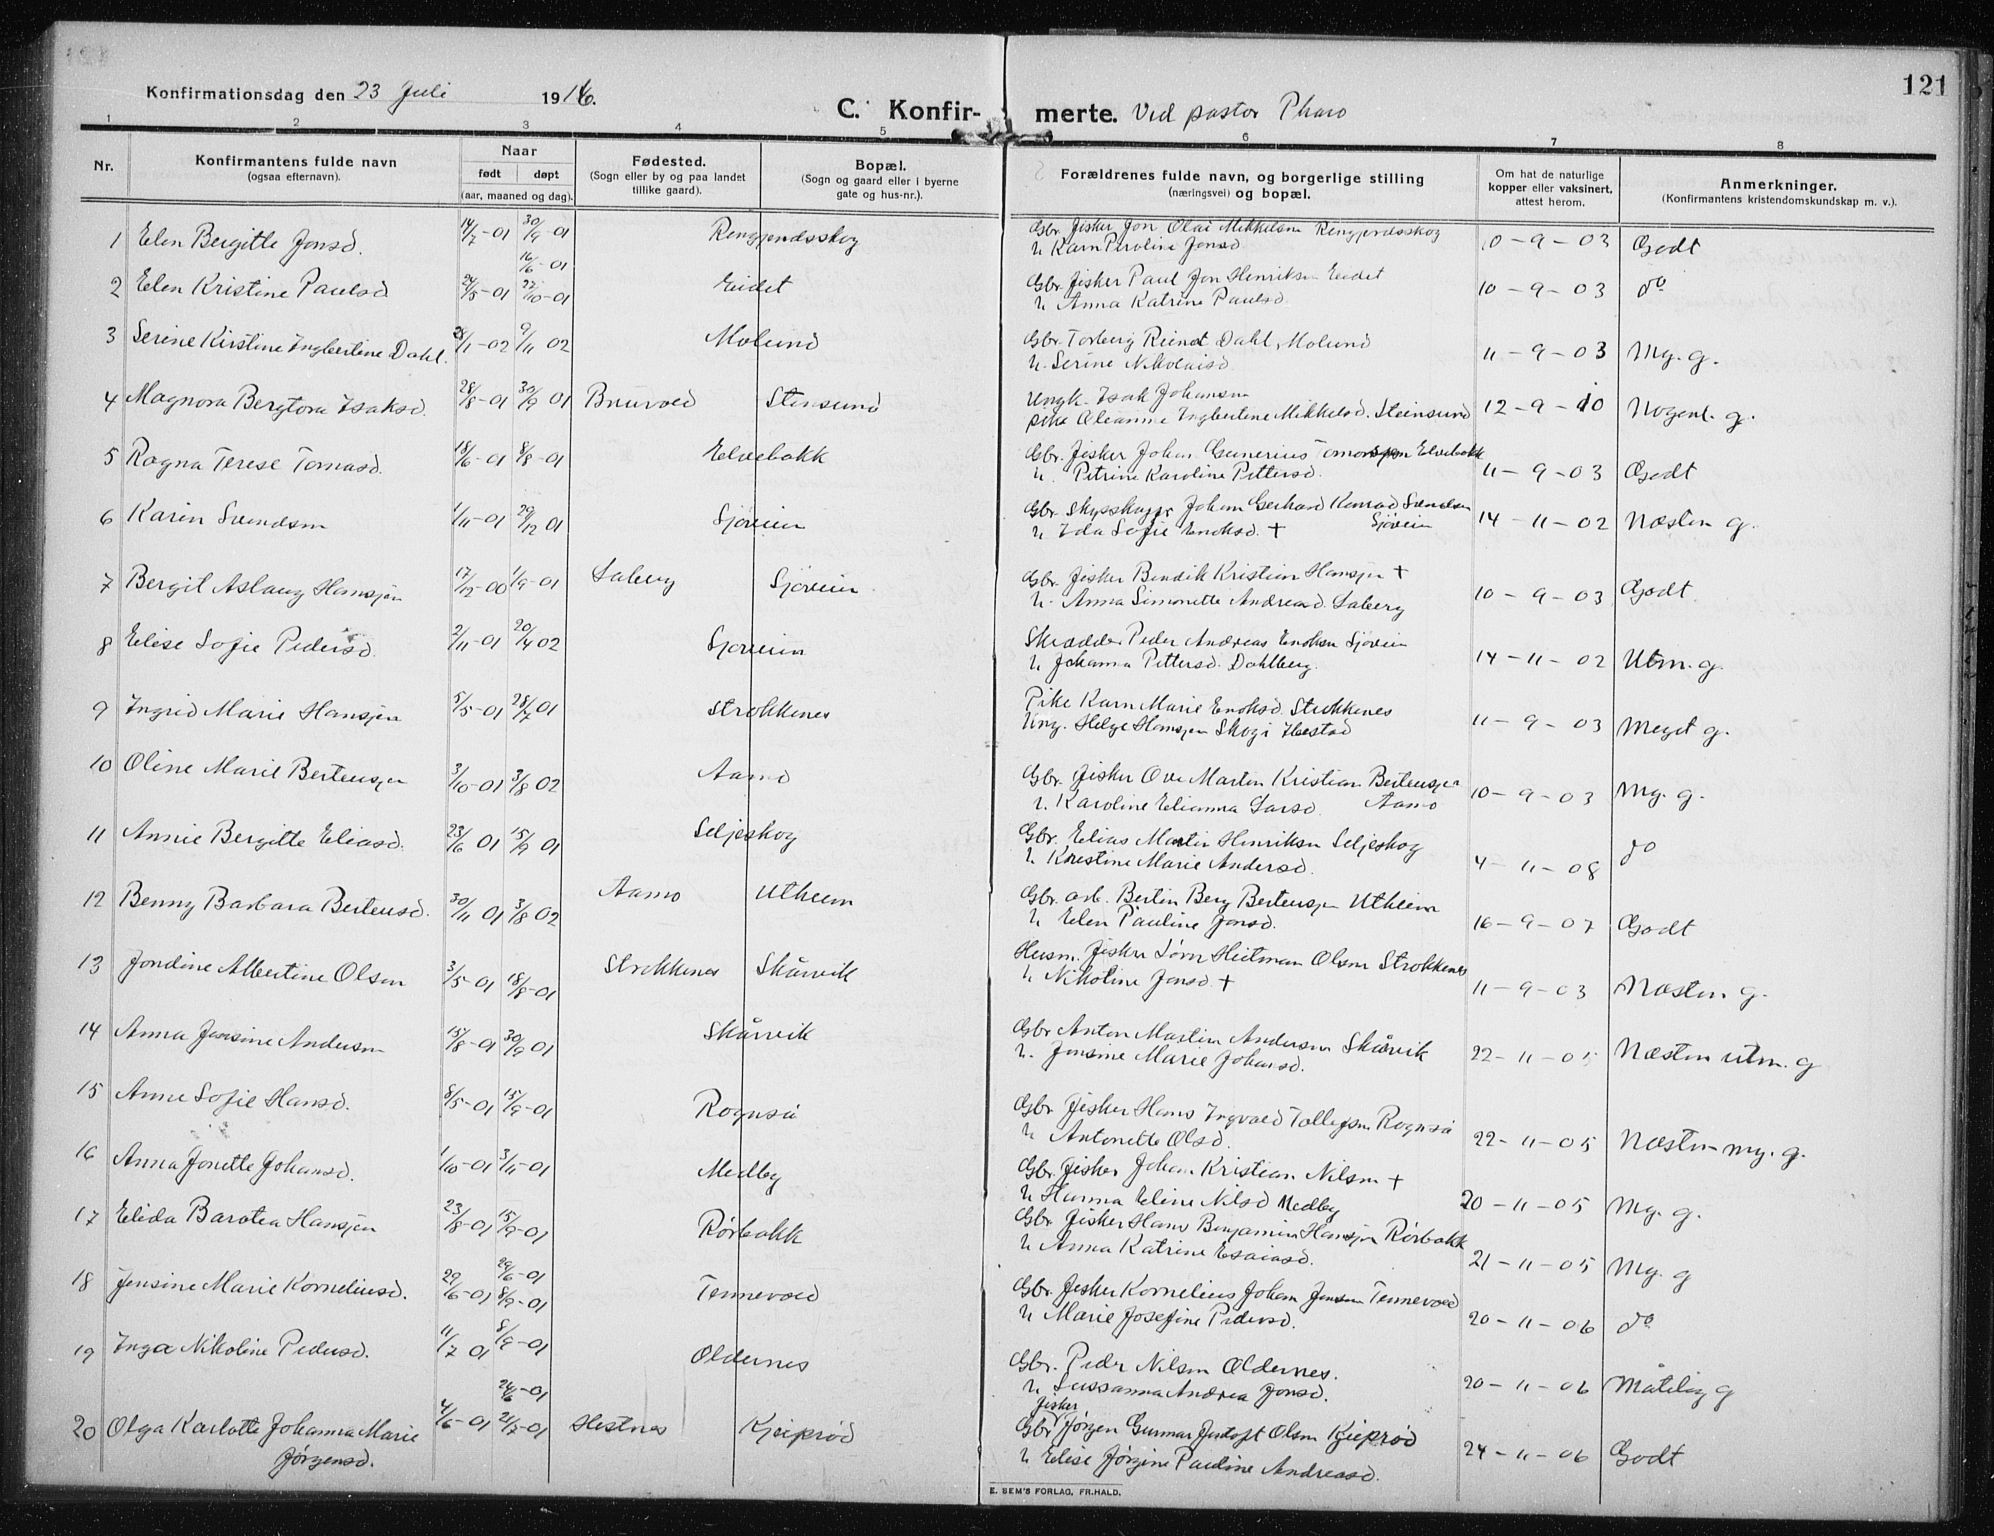 121
Konfirmationsdag den 23 Juli 1916.
C. Konfirmerte. Ved pastor Pharo
1 2 3 4 5 6 7 8
Nr. | Konfirmantens fulde navn (ogsaa efternavn). | Naar født | døpt (aar, maaned og dag). | Fødested. (Sogn eller by og paa landet tillike gaard). | Bopæl. (Sogn og gaard eller i byerne gate og hus-nr.). | Forældrenes fulde navn, og borgerlige stilling (næringsvei) og bopæl. | Om hat de naturlige kopper eller vaksinert, attest herom. | Anmerkninger. (Konfirmantens kristendomskundskap m. v.).
1 Elen Bergitte Jonsd. 14/7-01 30/9-01 Gbr. fisker Jon Olai Mikkelsen
u Karn Peroline Jonsd. 10-9-03 Godt
2 Elen Kristine Paulsd 24/5-01 16/6-01 22/10-01 Eidet Gbr. fisker Paul Jon Henriksen Eidet
u Anna Katrine Paulsd. 10-9-03 do
3 Serine Kirstine Ingbertine Dahl. 28/11-02 9/11 02 Molund Gbr. Torberg Reinet Dahl, Molund
u. Serine Nikolaisd. 11-9-03 Mg. g.
4 Magnora Bergtora Isaksd. 28/8-01 30/9 01 Bruvold Stensund Ungk. Isak Johansen
pike Oleanna Ingbertine Mikkelsd. Steinsund 12-9-10 Nogenl. g.
5 Ragna Terese Tomasd. 18/6-01 8/8-01 Elvebakk Gbr. fisker Johan Gunerius Tomassen Elvebakk
u. Petrine Karoline Pettersd. 11-9-03 Godt
6 Karin Svendsen 1/11-01 29/12 01 Sjøveien Gbr. Skysskaffer Johan Gerhard Konrad Svendsen Sjøveien
u Ida Sofie Enoksd. + 14-11-02 Næsten g.
7 Bergit Aslaug Hansen 17/12-00 1/9-01 Laberg Sjøveien Gbr. fisker Bendik Kristian Hansen +
u. Anna Simonette Andreasd. Laberg 10-9-03 Godt
8 Elise Sofie Pedersd. 2/11-01 20/4 02 Sjøveien Skrædder Peder Andreas Enoksen Sjøveien
u. Johanna Pettersd. Dahlberg. 14-11-02 Utm. g.
9 Ingrid Marie Hansen 5/5-01 28/7 01 Strokkenes Pike Karn Marie Enoksd. Strokkenes
Ung. Helge Hansen Skog i Ibestad 11-9-03 Meget g.
10 Oline Marie Bertensen 3/10-01 3/8 02 Aamo Gbr. fisker Ove Martin Kristian Bertensen
u. Karoline Elianna Larsd. Aamo 10-9-03 Mg. g.
11 Annie Bergitte Eliasd. 23/6 01 15/9 01 Seljeskog Gbr. Elias Martin Henriksen Seljeskog
u. Kristine Marie Andersd. 4-11-08 do
12 Benny Barbara Bertensd. 30/11 01 3/8 02 Aamo Utheim Gbr. arb. Bertin Berg Bertensen Utheim
u Elen Pauline Jonsd. 16-9-07 Godt
13 Jondine Albertine Olsen 3/5-01 18/8-01 Strokkenes Skårvik Husm. fisker Heitman Olsen Strokkenes
u Nikoline Jonsd + 11-9-03 Næsten g.
14 Anna Jensine Andersen 15/8-01 30/9 01 Skårvik Gbr Anton Martin Andersen Skårvik
u. Jensine Marie Johansd. 22-11-05 Næsten utm. g
15 Anne Sofie Hansd. 8/5-01 15/9-01 Rognså Gbr. fisker Hans Ingvald Tollefsen Rognså
u Antonette Olsd. 22-11-05 Næsten mg. g.
16 Anna Jonette Johansd. 1/10-01 3/11-01 Medby Gbr. fisker Johan Kristian Nilsen +
u Hanna Eline Nilsd Medby 20-11-05 Mg. g.
17 Elida Barotea Hansen 23/8-01 15/9-01 Rørbakk Gbr. fisker Hans Benjamin Hansen Rørbakk
u Anna Katrine Esaiasd. 21-11-05 Mg. g
18 Jensine Marie Korneliusd. 29/6-01 29/6-01 8/9-01 Tennevold Gbr. fisker Kornelius Johan Jensen Tennevold
u Marie Josefine Pedersd. 20-11-06 do
19 Inga Nikoline Pedersd. 11/7 01 8/9-01 Oldernes Gbr. Peder Nilsen Oldernes.
u Sussanna Andrea Jonsd. 20-11-06 Måtelig g
20 Olga Karlotte Johanna Marie 4/6-01 24/6-01 21/7-01 Hestnes Kjeiprød Gbr fisker Jørgen Gunnar Olsen Kjeiprød
Jørgensd. u Elise Jørgine Pauline Andreasd. 24-11-06 Godt
E. SEM'S FORLAG, FR.HALD.